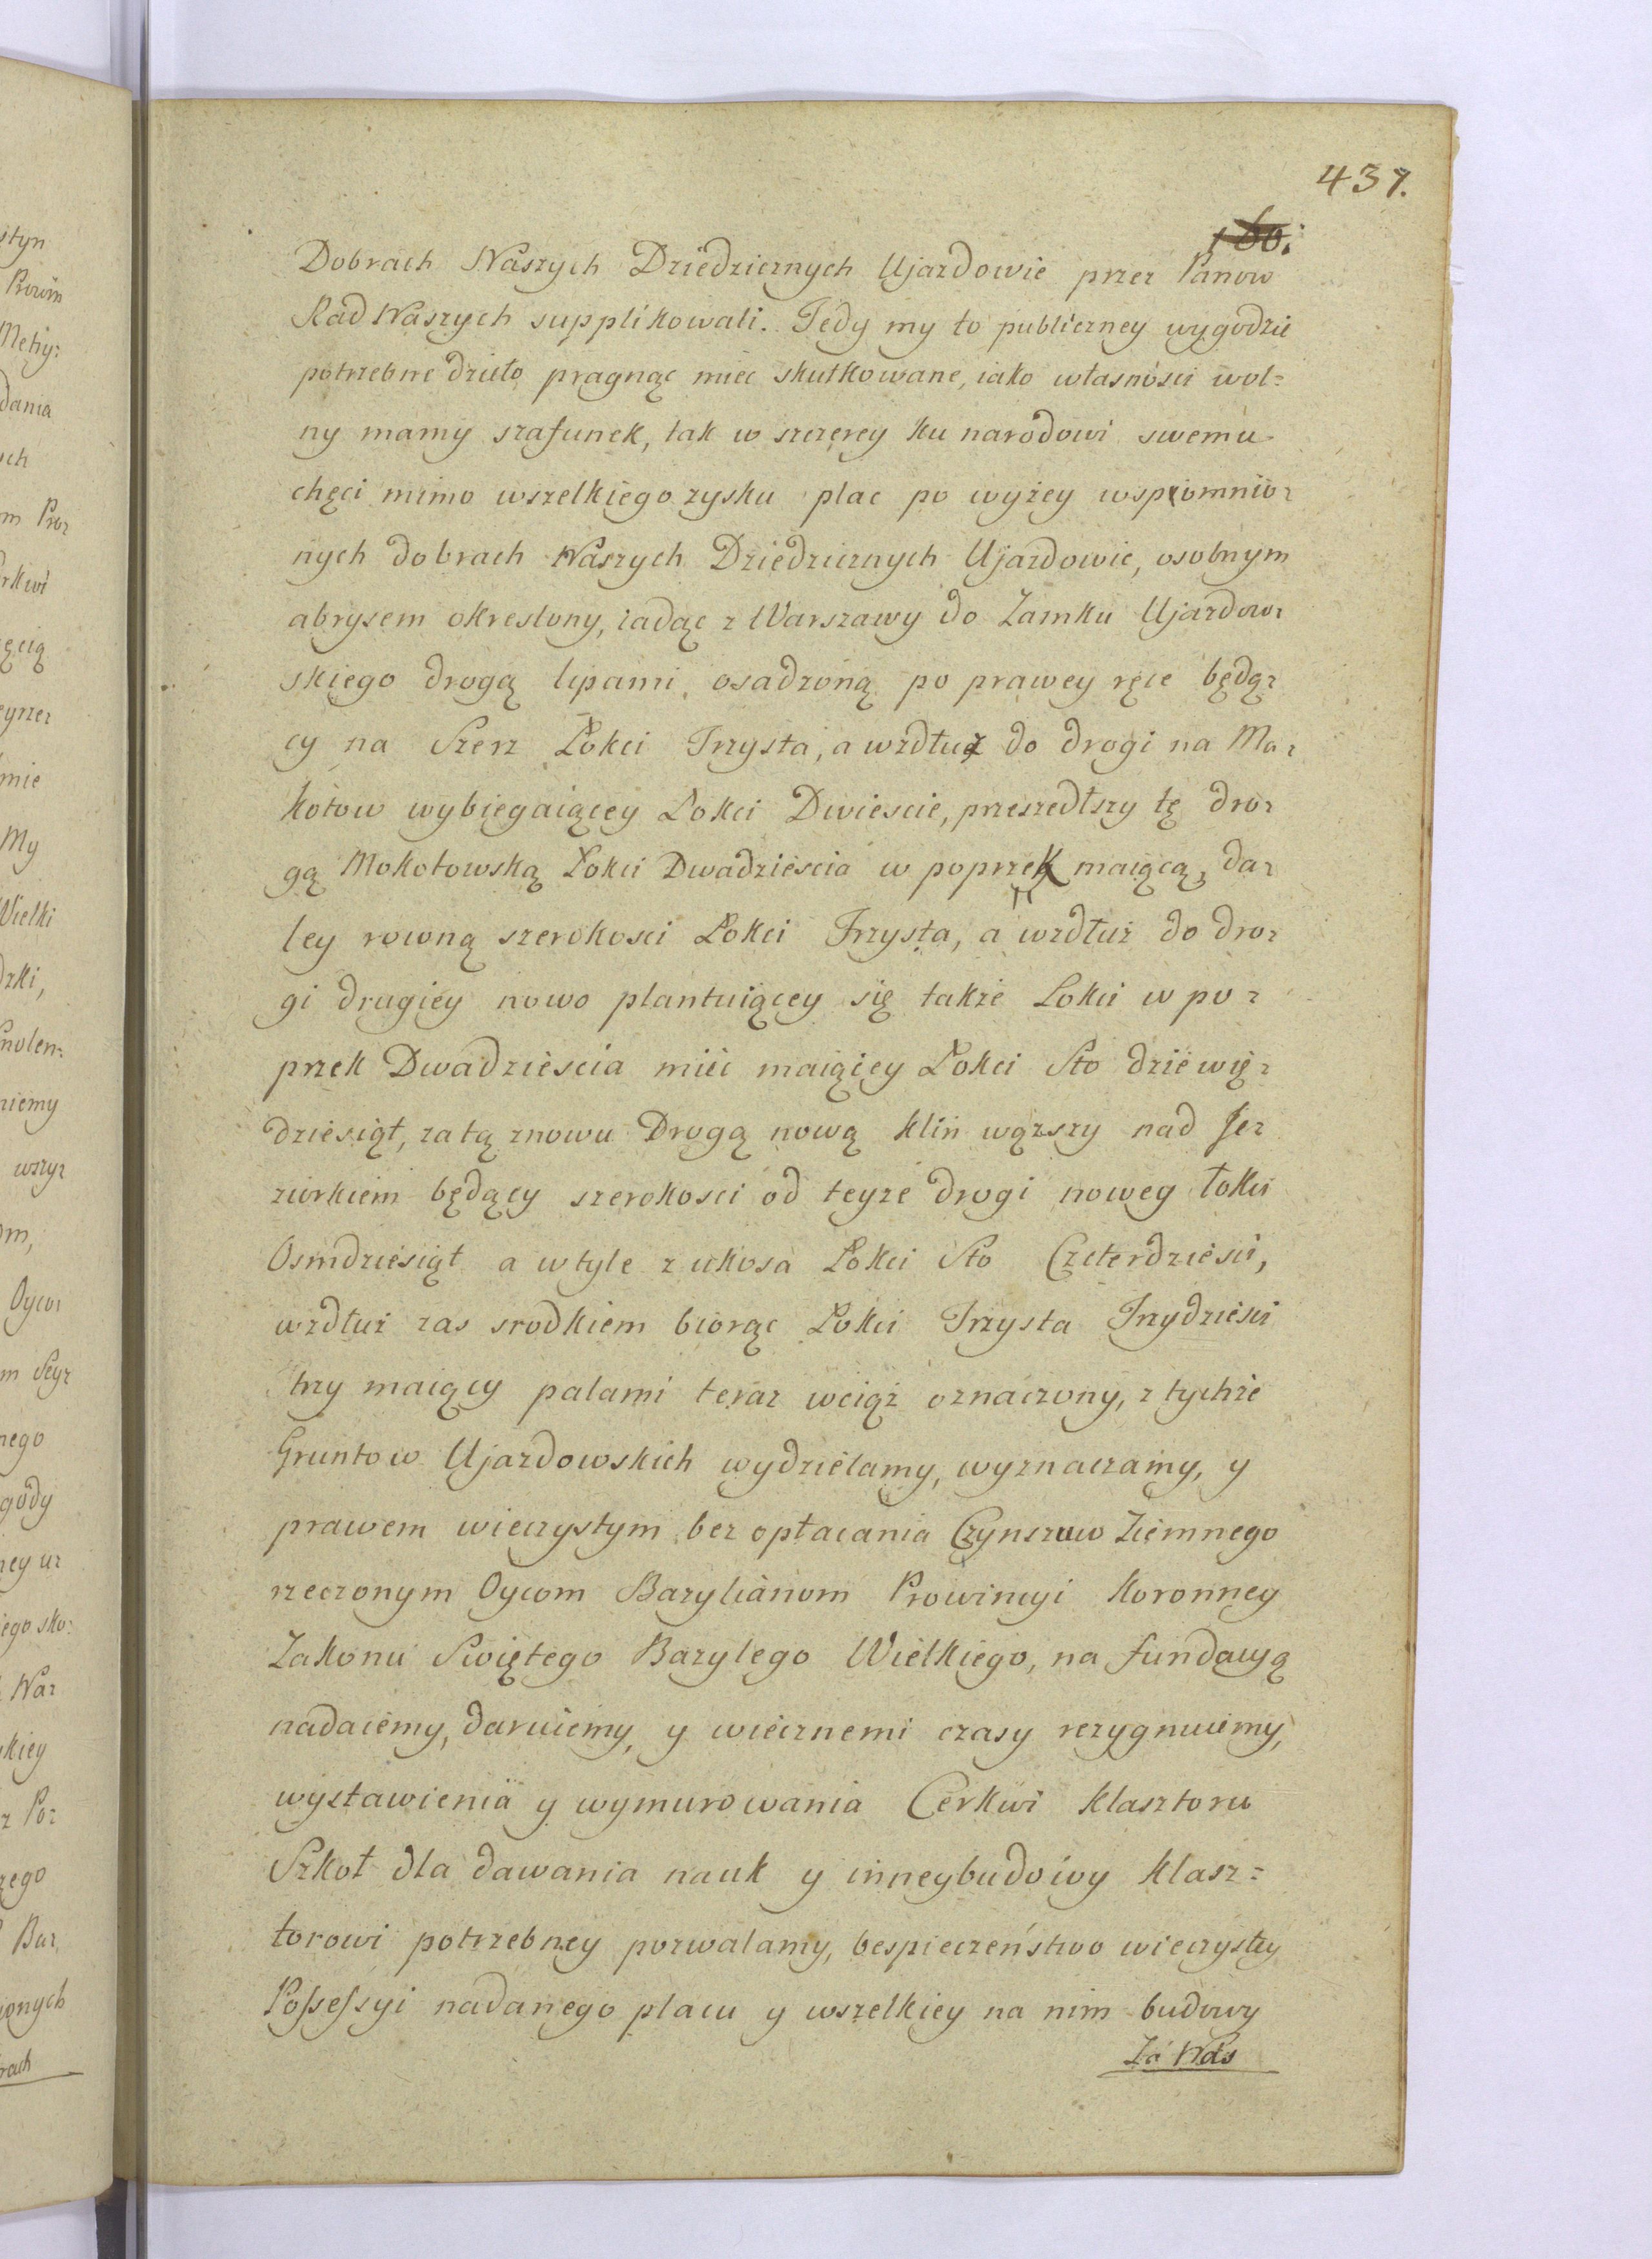 437.
Dobrach Naszych Dziedzicznych Ujazdowie przez Panow
Rad Naszych supplikowali. Tedy my to publiczney wygodzie
potrzebne dzieło pragnąc mieć skutkowane, iako własności wol=
ny mamy szafunek, tak w szczerey ku narodowi swemu
chęci mimo wszelkiego zysku plac po wyżey wspomnio=
nych dobrach Naszych Dziedzicznych Ujazdowie, osobnym
abrysem okreslony, iadąc z Warszawy do Zamku Ujazdow=
skiego drogą lipami osadzoną po prawey ręce będą=
cy na Szerz Łokci Trzysta, a wzdłuż do drogi na Mo=
kotow wybiegaiącey Łokci Dwiescie, przeszedłszy tę dro=
gą Mokotowską Łokci Dwadzieścia w poprzek maiącą, da=
ley rowną szerokosci Łokci Trzysta, a wzdłuż do dro=
gi drugiey nowo plantuiącey się także Łokci w po=
przek Dwadzieścia mieć maiącey Łokci Sto dziewię=
dziesiąt, za tą znowu Drogą nową klin wązszy nad Je=
ziorkiem będący szerokosci od teyże drogi noweg łokci
Osmdziesiąt a w tyle z ukosa Łokci Sto Czterdzieści,
wzdłuż zas srodkiem biorąc Łokci Trzysta Trzydzieści
trzy maiący palami teraz wciąż oznaczony, z tychże
Gruntow Ujazdowskich wydzielamy, wyznaczamy, y
prawem wieczystym bez opłacania Czynszuw Ziemnego
rzeczonym Oycom Bazylianom Prowincyi Koronney
Zakonu Swiętego Bazylego Wielkiego, na fundacyą
nadaiemy, daruiemy, y wiecznemi czasy rezygnuiemy,
wystawienia y wymurowania Cerkwi Klasztoru
Szkoł dla dawania nauk y inneybudowy klasz=
torowi potrzebney pozwalamy, bespieczeństwo wieczystey
Possessyi nadanego placu y wszelkiey na nim budowy
Za Nas